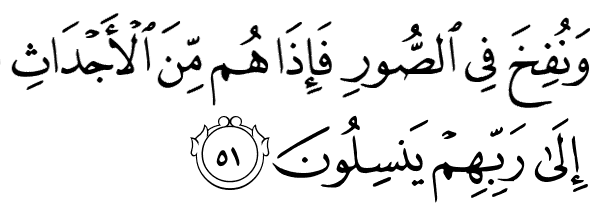 وَنُفِخَ فِى ٱلصُّورِ فَإِذَا هُم مِّنَ ٱلۡأَجۡدَاثِ
إِلَىٰ رَبِّهِمۡ يَنسِلُونَ ٥١